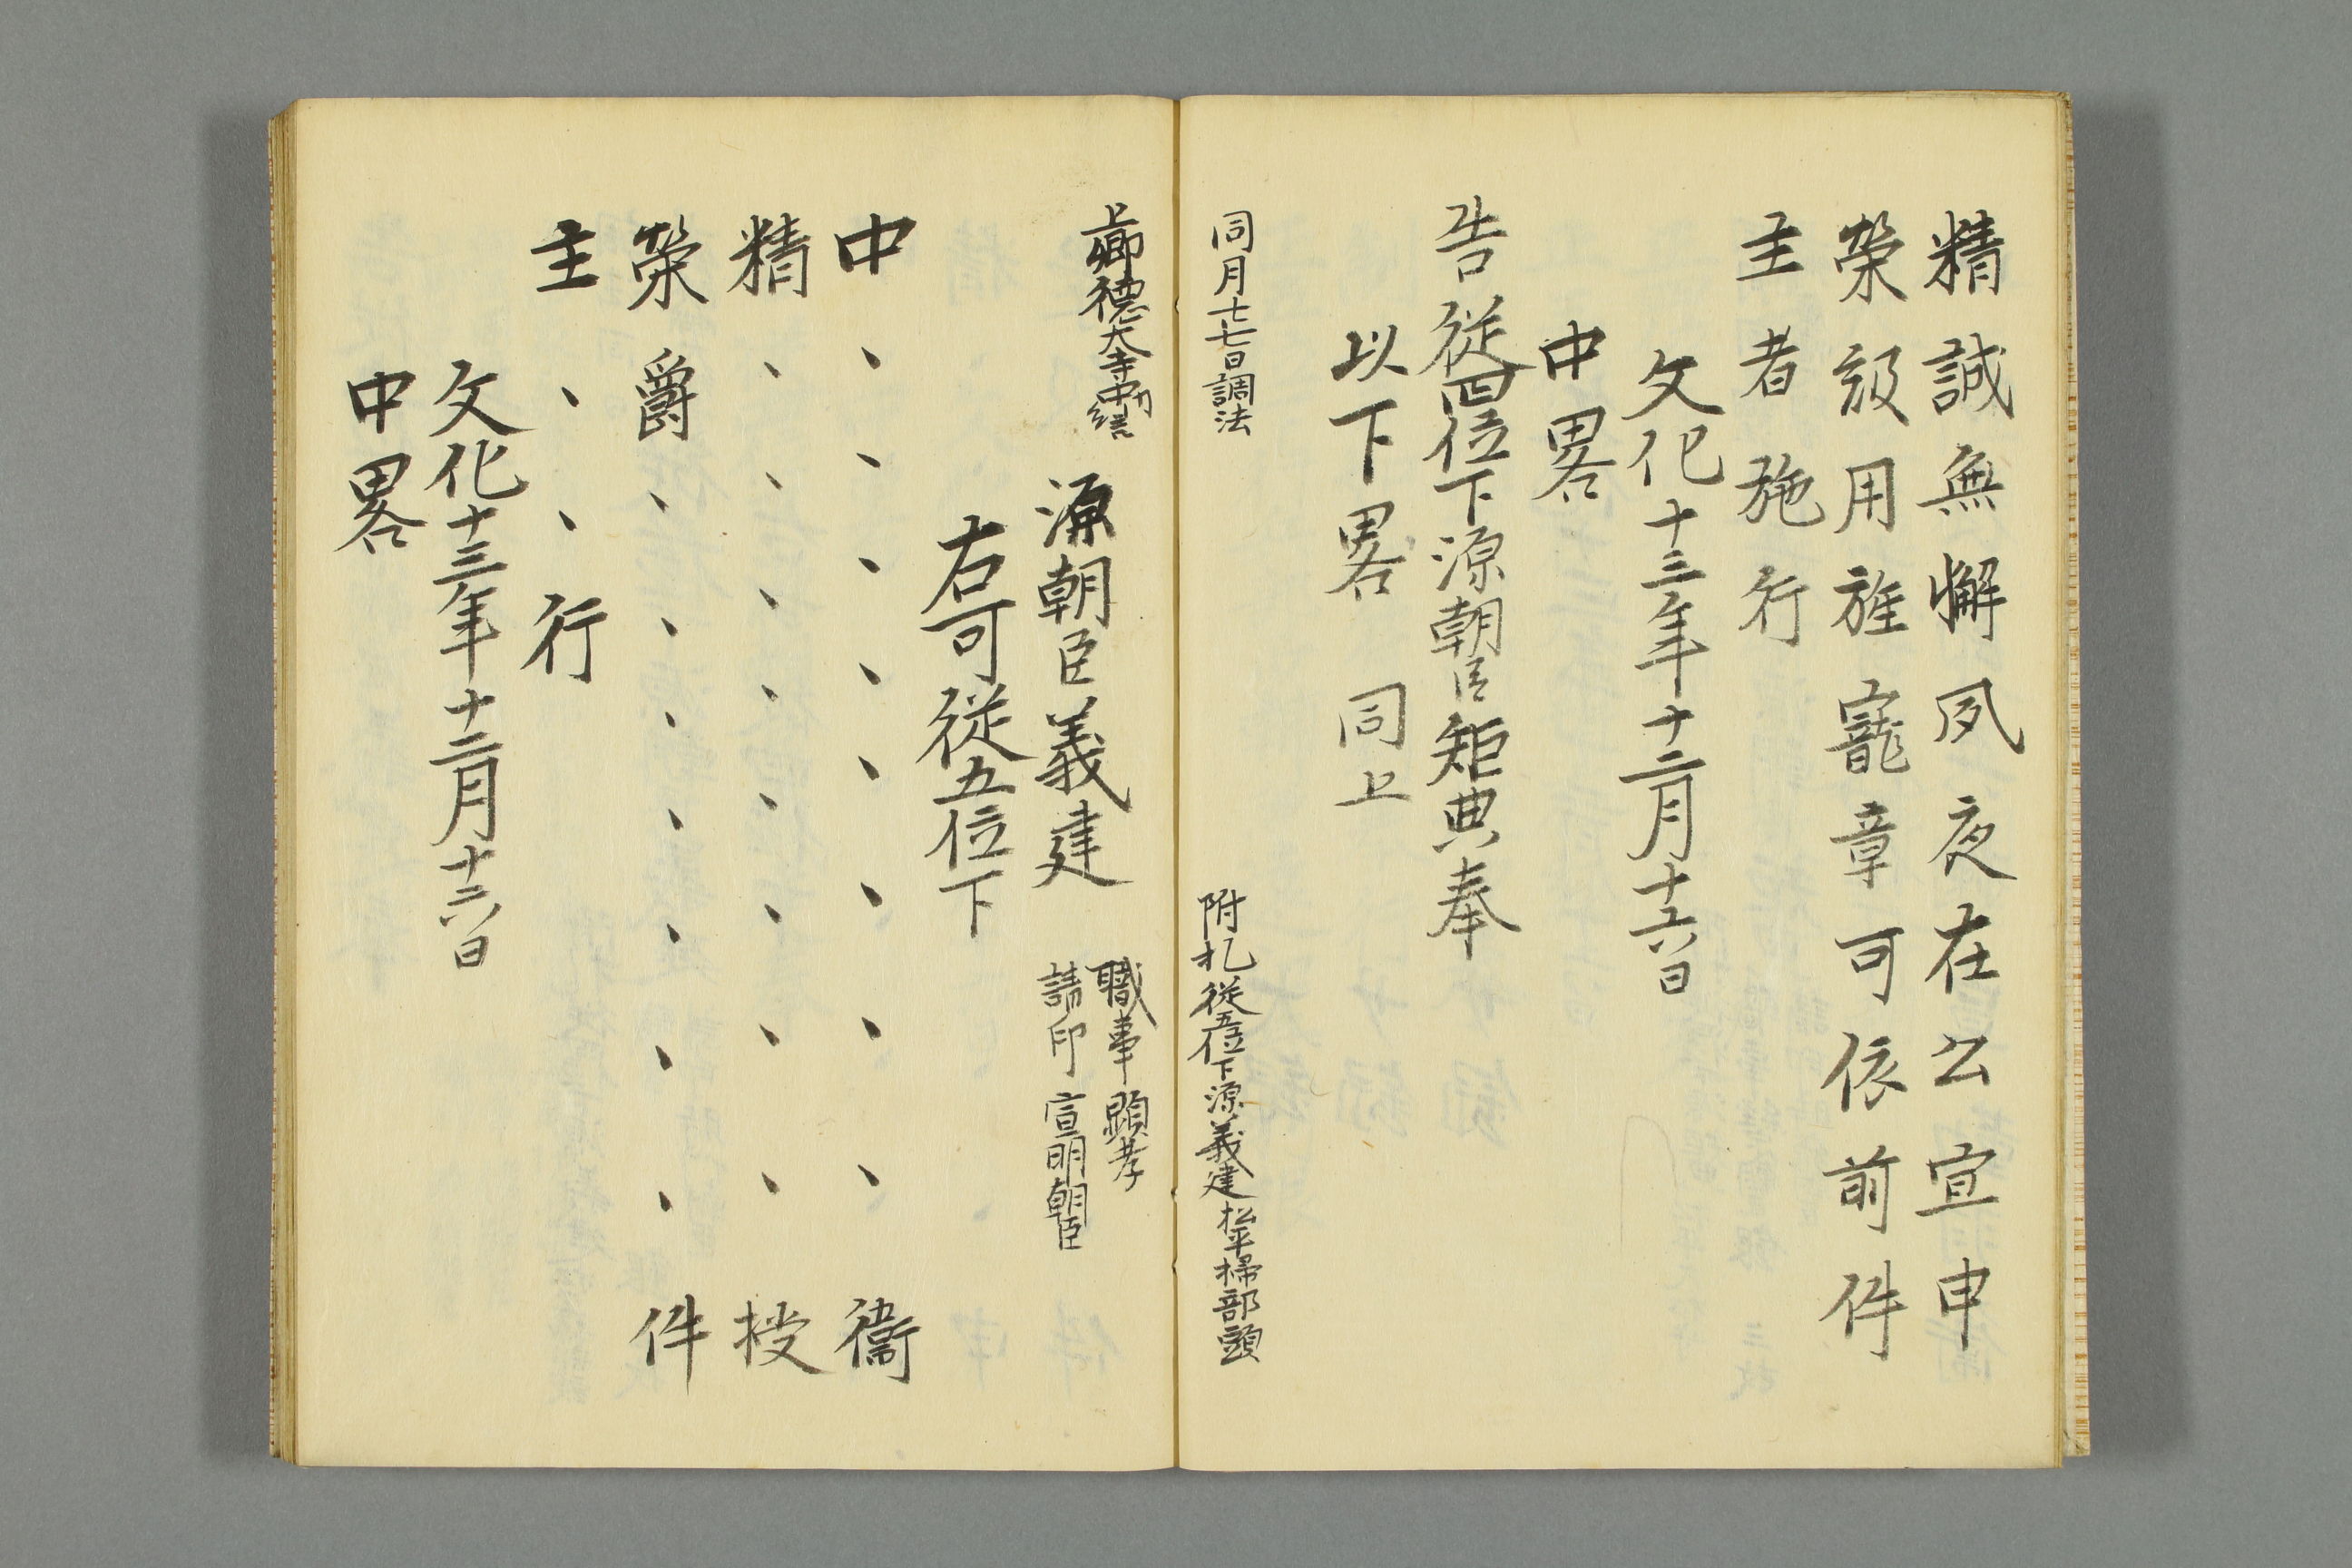 精誠無懈夙夜在公宣申
榮級用旌寵章可依前件
主者施行
文化十三年十二月十六日
中畧
告従四位下源朝臣矩典奉
以下畧 同上
同月十七日調法
附札従五位下源義建松平掃部頭
上卿徳大寺中納言
源朝臣義建
職事顕孝
請印宣明朝臣
右可従五位下
中、、、、、、、、衞
精、、、、、、、、授
榮爵、、、、、、、件
主、、行
文化十三年十二月十六日
中畧